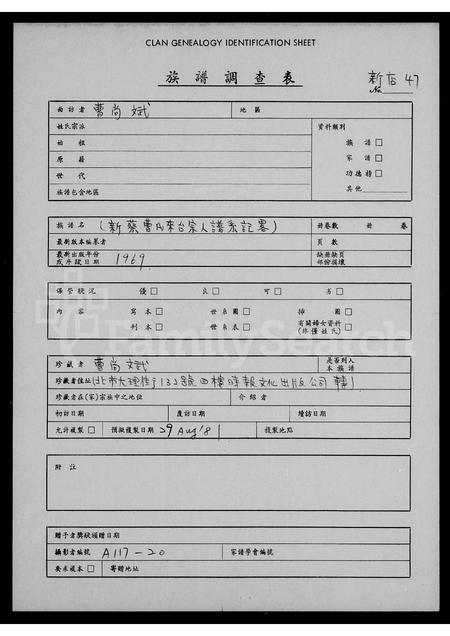 CLAN GENEALOGY IDENTIFICATION SHEET
族譜調查表
新店 47
No.
面訪者 曹尚斌 地區
姓氏宗派 資料類別
始祖 族譜 □
原籍 家譜 □
世代 功德榜 □
族譜包含地區 其他
族譜名 (新蔡曹氏來台宗人譜系記畧) 冊卷數 冊 卷
最新版本編纂者 頁數
最新出版年份 缺冊缺頁
或序跋日期 1969. 部份損壞
保管狀況 優 □ 良 □ 可 □ 劣 □
內容 寫本 □ 世系圖 □ 插圖 □
刊本 □ 世系表 □ 有關婦女資料 □
(非僅姓氏)
FamilySearch
珍藏者 曹尚斌 是否列入
本族譜
珍藏者住址 (北市大理街132號四樓時報文化出版公司轉)
珍藏者在(家)宗族中之地位 介紹者
初訪日期 覆訪日期 續訪日期
允許複製 □ 預擬複製日期 29 Aug '81 複製地點
附註
贈予者獎狀頒贈日期
攝影者編號 A117-20 家譜學會編號
要求複本 □ 寄贈地址